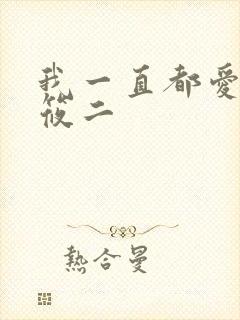 我一直都愛
筱二
熱合曼